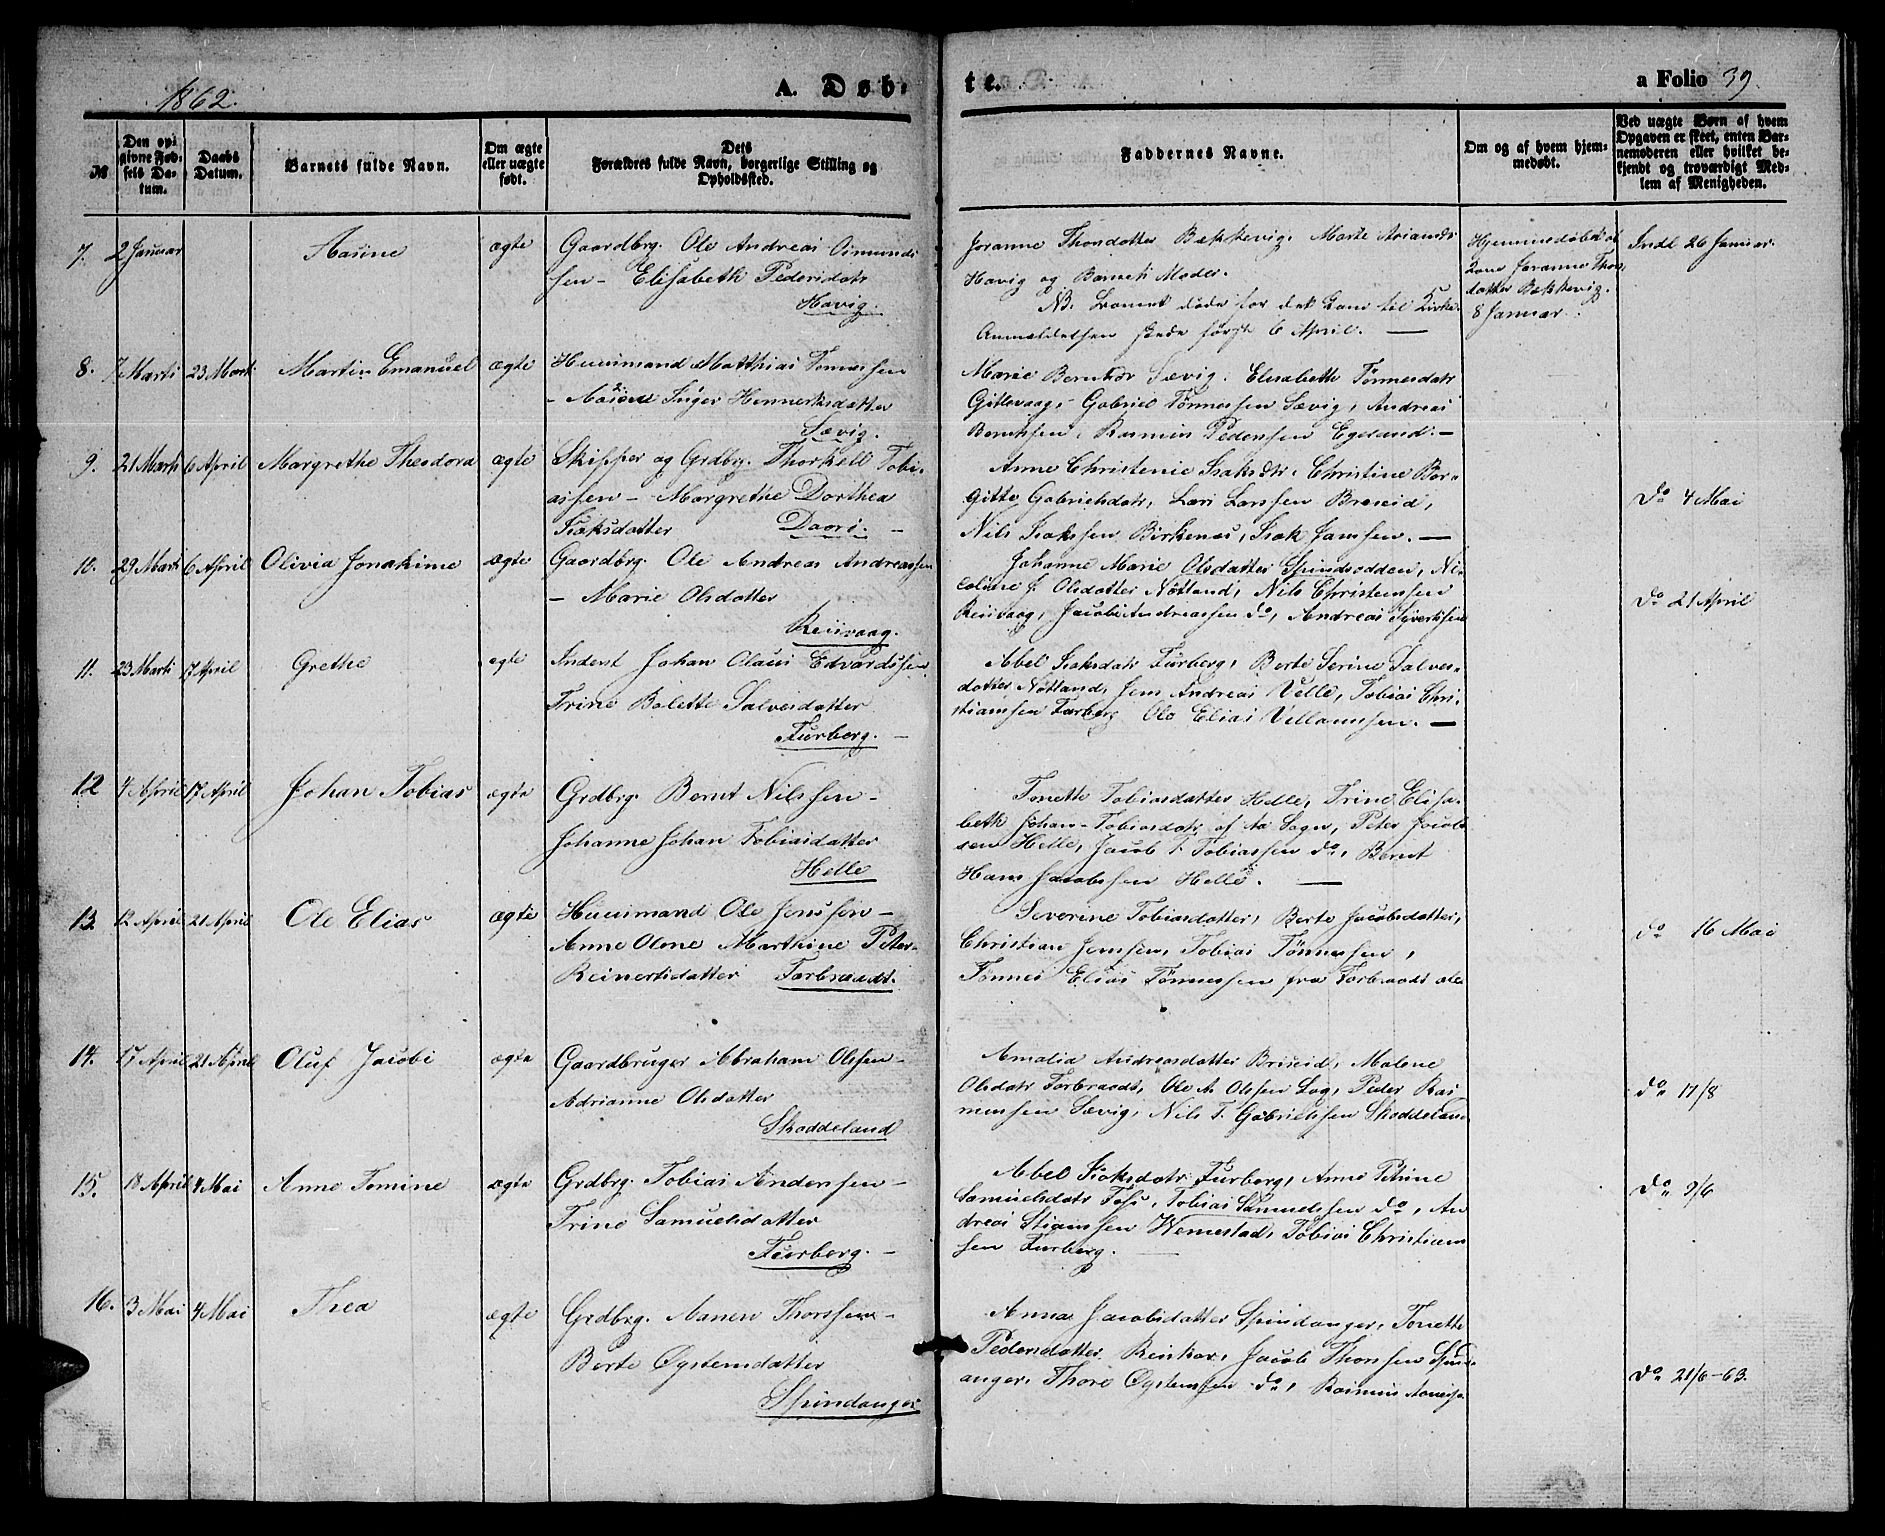 1862.
A. Døb-
te.
a Folio 39.
№
Den opgivne Fødsels Datum.
Daabs Datum.
Barnets fulde Navn.
Om ægte eller uægte født.
Dets Forældres fulde Navn, borgerlige Stilling og Opholdssted.
Faddernes Navne.
Om og af hvem hjemmedøbt.
Ved uægte Børn af hvem Opgaven er skeet, enten Barnemoderen eller hvilket bekjendt og troværdigt Medlem af Menigheden.
7. 2 Januar
Aasine
ægte
Gaardbrg. Ole Andreas Osmunds
sen - Elisabeth Pedersdatr
Havig.
Joranne Thorsdatter Bækkevig, Marte
Havig og Barnets Moder.
NB. Barnet døde før det kom til Kirke
Anmeldelsen skede først 6 April. —
Hjemmedøbt af
Kone Joranne Thors
datter Bækkevig.
8 Januar.
Indl 26 Januar.
8. 7 Marts 23 Marts
Martin Emanuel
ægte
Huusmand Matthias Tønnessen
- Inger Hennerksdatter
Sævig.
Marie Berntsdr Sævig. Elisabeth Tønnesdatr
Gitlevaag, Gabriel Tønnessen Sævig, Andreas
Berntsen, Rasmus Pedersen Egeland. —
9. 21 Marts 6 April
Margrethe Theodora
ægte
Skipper og Grdbrg. Thorkell Tobi-
assen - Margrethe Dorthea
Isaksdatter Daars. —
Anne Christenie Isaksdtr. Christine Bor-
gitte Gabrielsdatr, Lars Larssen Briseid,
Nils Isakssen Birkenes, Isak Jansen. —
do 4 Mai
10. 29 Marts 6 April
Olivia Jonakime
ægte
Gaardbrg. Ole Andreas Andreassen
- Marie Olsdatter
Reiisvaag.
Johanne Marie Olsdatter Spindsodden, Ni-
coline J. Olsdatter Nøtland, Nils Christenssen
Reiisvaag, Jacob Andreassen do, Andreas Syvertsen
do 21 April
11. 23 Marts 17 April
Grethe
ægte
Inderst Johan Olaus Edvardssen
Trine Bolette Salvesdatter
Furberg. —
Abel Isaksdatr Furberg, Berte Serine Salves-
datter Nøtland, Jens Andreas Velle, Tobias Chri-
stianssen Furberg Ole Elias Villumssen. —
12 4 April 17 April
Johan Tobias
ægte
Grdbrg. Bernt Nilssen -
Johanne Johan Tobiasdatter
Helle
Tonette Tobiasdatter Helle, Trine Elisa-
beth Johan-Tobiasdatr af Aa Sogn, Peter Jacob
sen Helle, Jacob T. Tobiassen do, Bernt
Hans Jacobssen Helle. —
13 12 April 21 April
Ole Elias
ægte
Huusmand Ole Jenssen -
Anne Olene Marthine Peter-
Reinertsdatter Farbraadt.
Severine Tobiasdatter, Berte Jacobsdatter,
Christian Jenssen, Tobias Tønnessen,
Tønnes Elias Tønnessen fra Farbraadt alle
do 16 Mai
14. 17 April 21 April
Oluf Jacobi
ægte
Gaardbruger Abraham Olssen -
Adrianne Olsdatter
Skoddeland
Amalia Andreasdatter Briseid, Malene
Olsdatr Farbraadt, Ole A. Olssen Log, Peder Ras
mussen Sævig, Nils T. Gabrielssen Skoddeland
do 17/8
15. 18 April 4 Mai
Anne Tomine
ægte
Grdbrg. Tobias Anderssen -
Trine Samuelsdatter
Furberg. —
Abel Isaksdatr Furberg, Anne Petrine
Samuelsdatr Fosse, Tobias Samuelssen do, An
dreas Stianssen Wemestad, Tobias Christian
sen Furberg. —
do 9/6
16. 3 Mai 4 Mai
Thea
ægte
Grdbrg. Aanen Thorssen -
Berte Øystensdatter
Spindanger
Anna Jacobsdatter Spindanger, Tonette
Pedersdatter Reiskar, Jacob Thorssen Spind-
anger, Thore Øystenssen do, Rasmus
do 21/6-63.